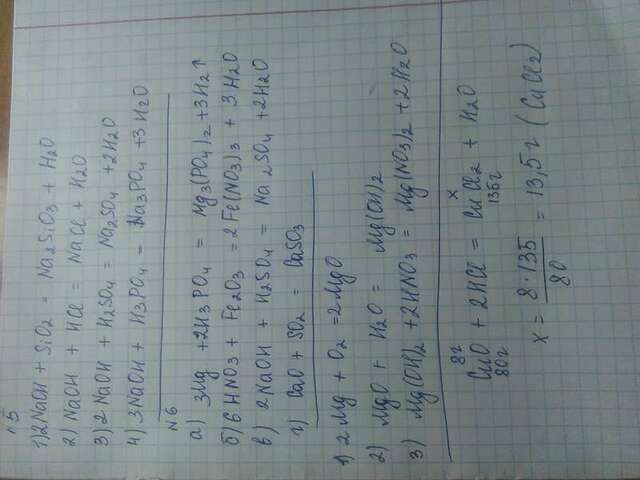 №5
1) 2NaOH + SiO2 = Na2SiO3 + H2O
2) NaOH + HCl = NaCl + H2O
3) 2NaOH + H2SO4 = Na2SO4 + 2H2O
4) 3NaOH + H3PO4 = Na3PO4 + 3H2O
№6
а) 3Mg + 2H3PO4 = Mg3(PO4)2 + 3H2↑
б) 6HNO3 + Fe2O3 = 2Fe(NO3)3 + 3H2O
в) 2NaOH + H2SO4 = Na2SO4 + 2H2O
г) CaO + SO2 = CaSO3
1) 2Mg + O2 = 2MgO
2) MgO + H2O = Mg(OH)2
3) Mg(OH)2 + 2HNO3 = Mg(NO3)2 + 2H2O
8г x
CuO + 2HCl = CuCl2 + H2O
80г 135г
x = 8·135 / 80 = 13,5г (CuCl2)